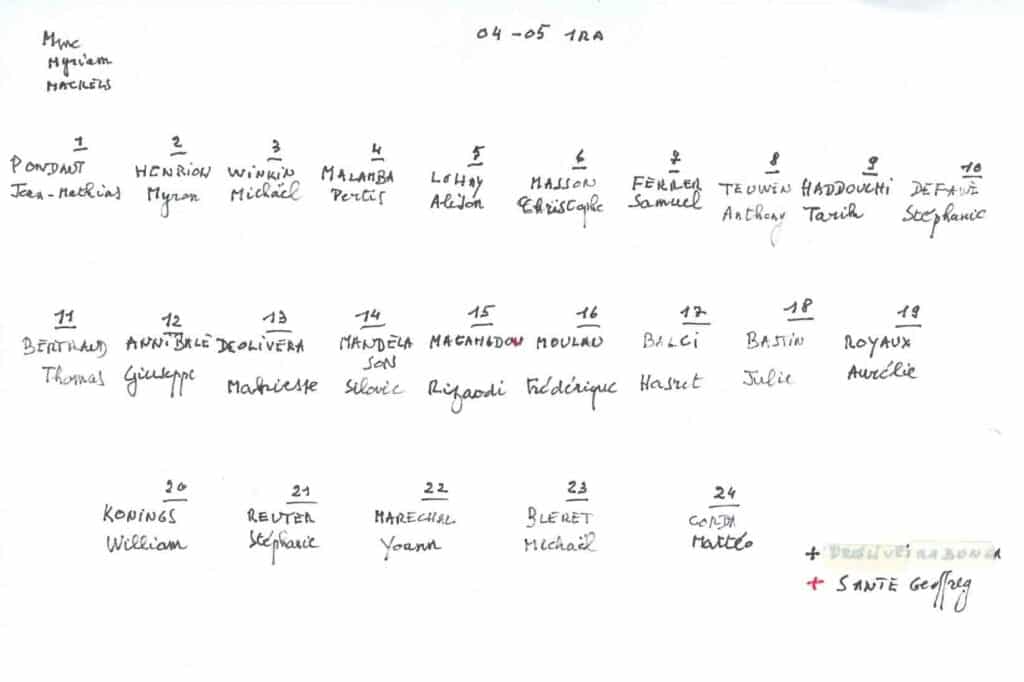 Mme
Myriam
MACKELS
04-05 1RA
1 2 3 4 5 6 7 8 9 10
PONDANT HENRION WINKIN MALAMBA LOHAY MASSON FERRER TEUWEN HADDOUCHI DEFAWE
Jean-Mathias Myron Michaël Pertis Alison Christophe Samuel Anthony Tarik Stéphanie
11 12 13 14 15 16 17 18 19
BERTRAND ANNIBALE DEOLIVERA MANDELA MAGAMEDOV MOULAN BALCI BASTIN ROYAUX
SON
Thomas Giuseppe Silovic Rizaodi Frédérique Hasret Julie Aurélie
20 21 22 23 24
KONINGS REUTER MARECHAL BLERET CORDA
William Stéphanie Yoann Michaël Mattéo
+ DEOLIVEIRABONGA
+ SANTE Geoffrey